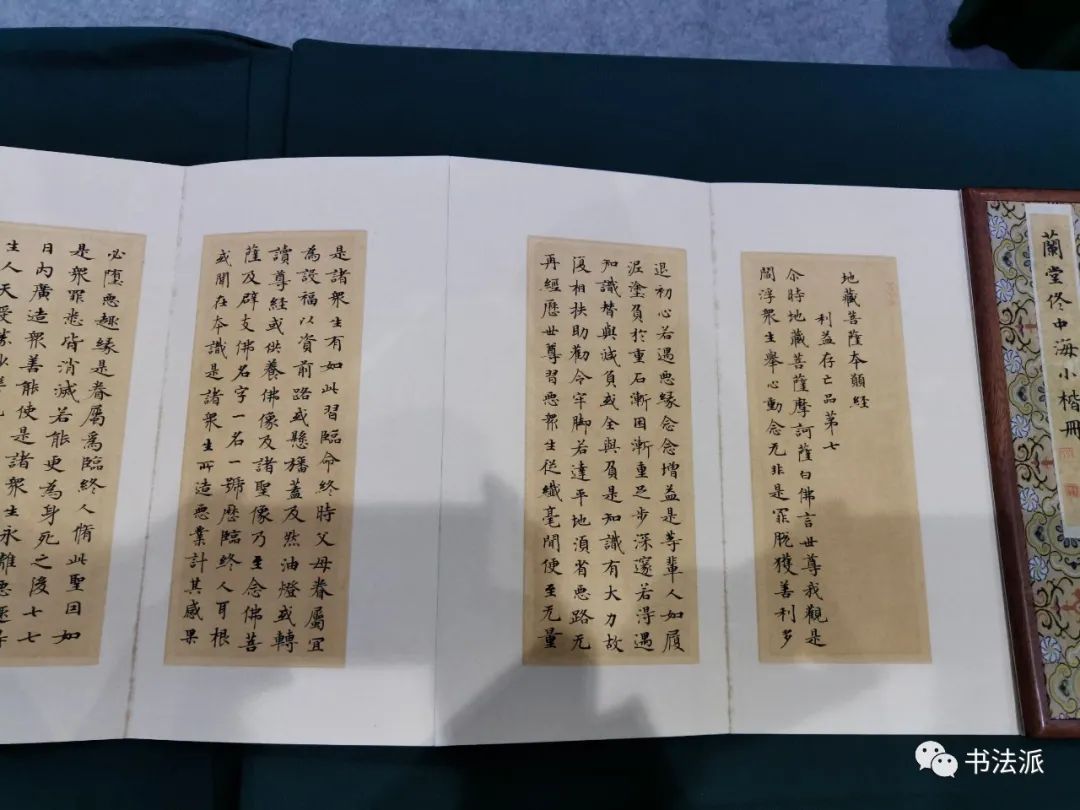 蘭堂佟中海小楷冊
地藏菩薩本願經
利益存亡品第七
尒時地藏菩薩摩訶薩白佛言世尊我觀是
閻浮衆生舉心動念无非是罪脫獲善利多
退初心若遇悪緣念念增益是等輩人如履
泥塗負於重石漸困漸重足步深邃若得遇
知識替與減負或全與負是知識有大力故
復相扶助勸令牢脚若達平地須省悪路无
再經歷世尊習悪衆生從纖毫間便至无量
是諸衆生有如此習臨命終時父母眷屬宜
為設福以資前路或懸旛蓋及然油燈或轉
讀尊經或供養佛像及諸聖像乃至念佛菩
薩及辟支佛名字一名一號歷臨終人耳根
或聞在本識是諸衆生所造悪業計其感果
必墮悪趣緣是眷屬爲臨終人脩此聖因如
是衆罪悉皆消滅若能更為身死之後七七
日內廣造衆善能使是諸衆生永離悪趣得
生人天受勝妙
书法派